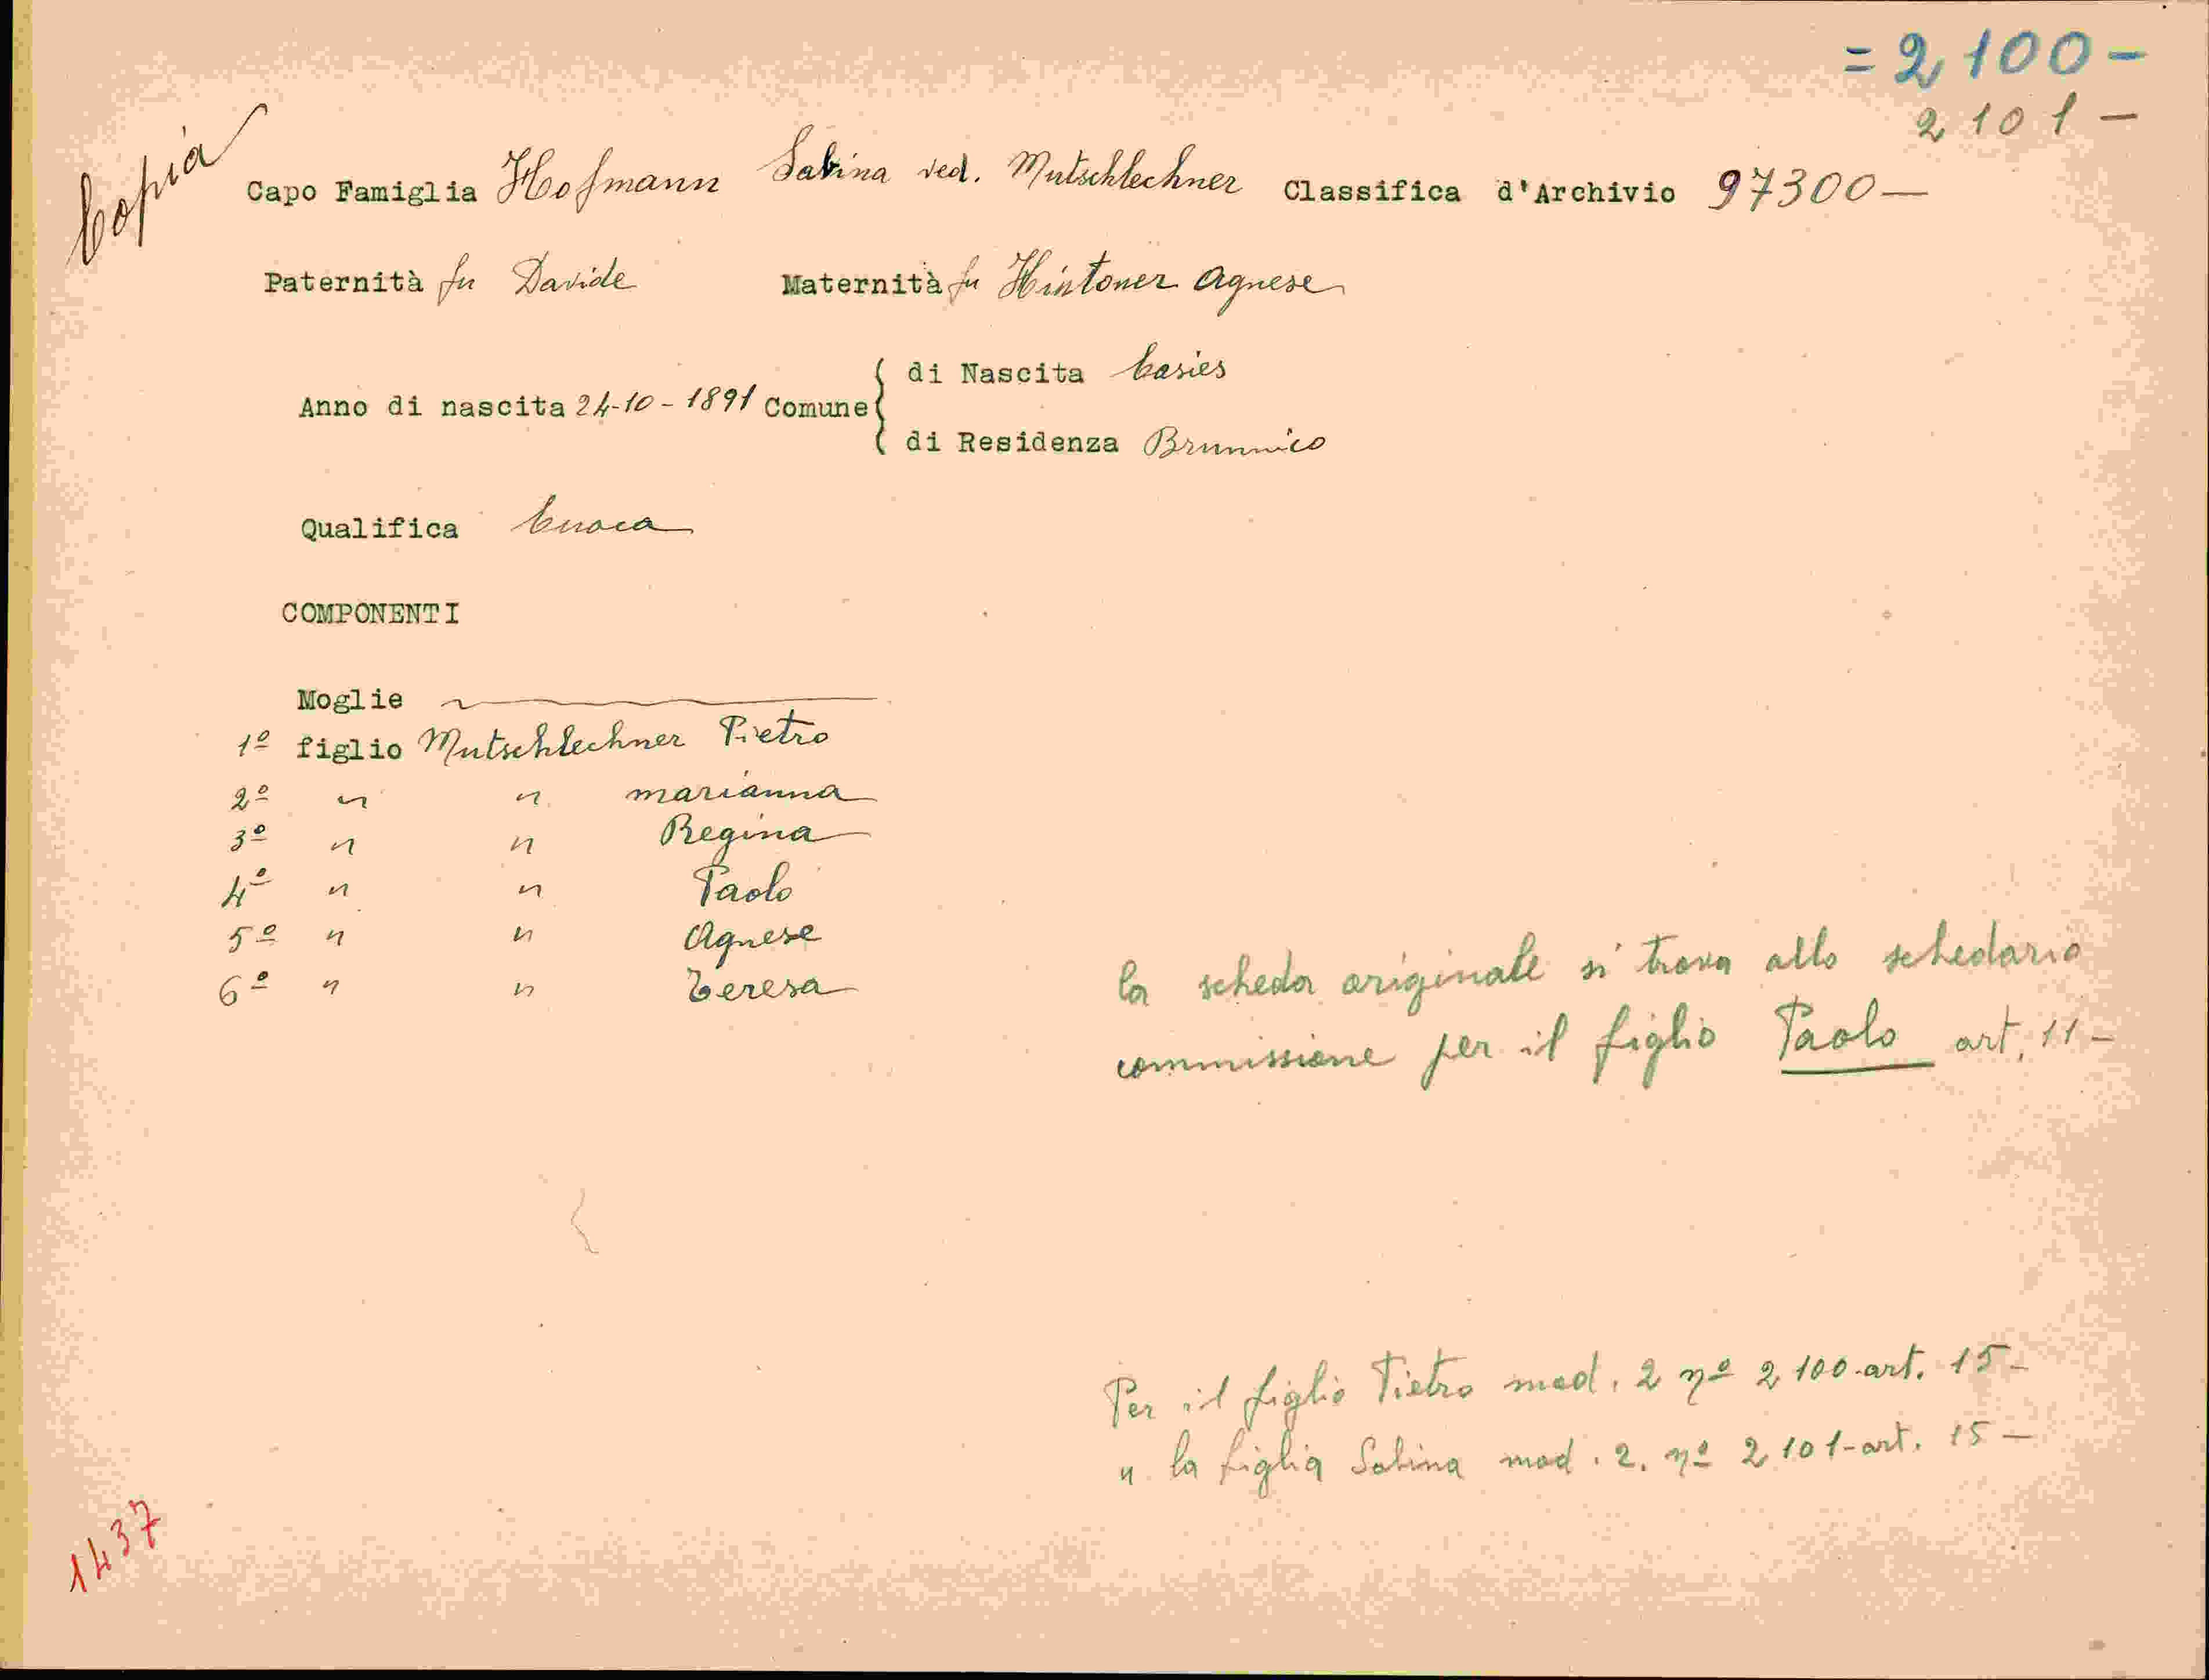 = 2100 -
2101 -
Copia
Capo Famiglia Hofmann Sabina ved. Mutschlechner Classifica d'Archivio 97300 —
Paternità fu Davide Maternità fu Hintoner Agnese
di Nascita Casies
Anno di nascita 24-10-1891 Comune
di Residenza Brunnico
Qualifica Cuoca
COMPONENTI
Moglie
1º figlio Mutschlechner Pietro
2º " " Marianna
3º " " Regina
4º " " Paolo
5º " " Agnese
6º " " Teresa
la scheda originale si trova allo schedario
commissione per il figlio Paolo art. 11 -
Per il figlio Pietro mod. 2 nº 2100-art. 15 -
" la figlia Sabina mod. 2. nº 2101-art. 15 —
1437